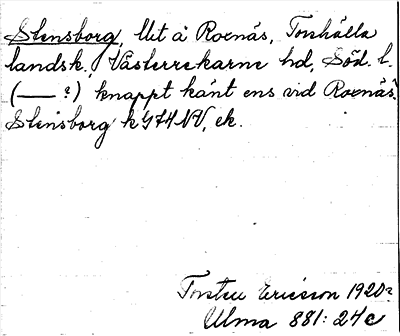 Stensborg, llt å Roxnäs, Torshälla
landsk., Västerrekarne hd, Söd. l.
(— ?) knappt känt ens vid Roxnäs.
Stensborg k 974 NV, ek.
Torsten Ericsson 1920?
Ulma 881: 24c